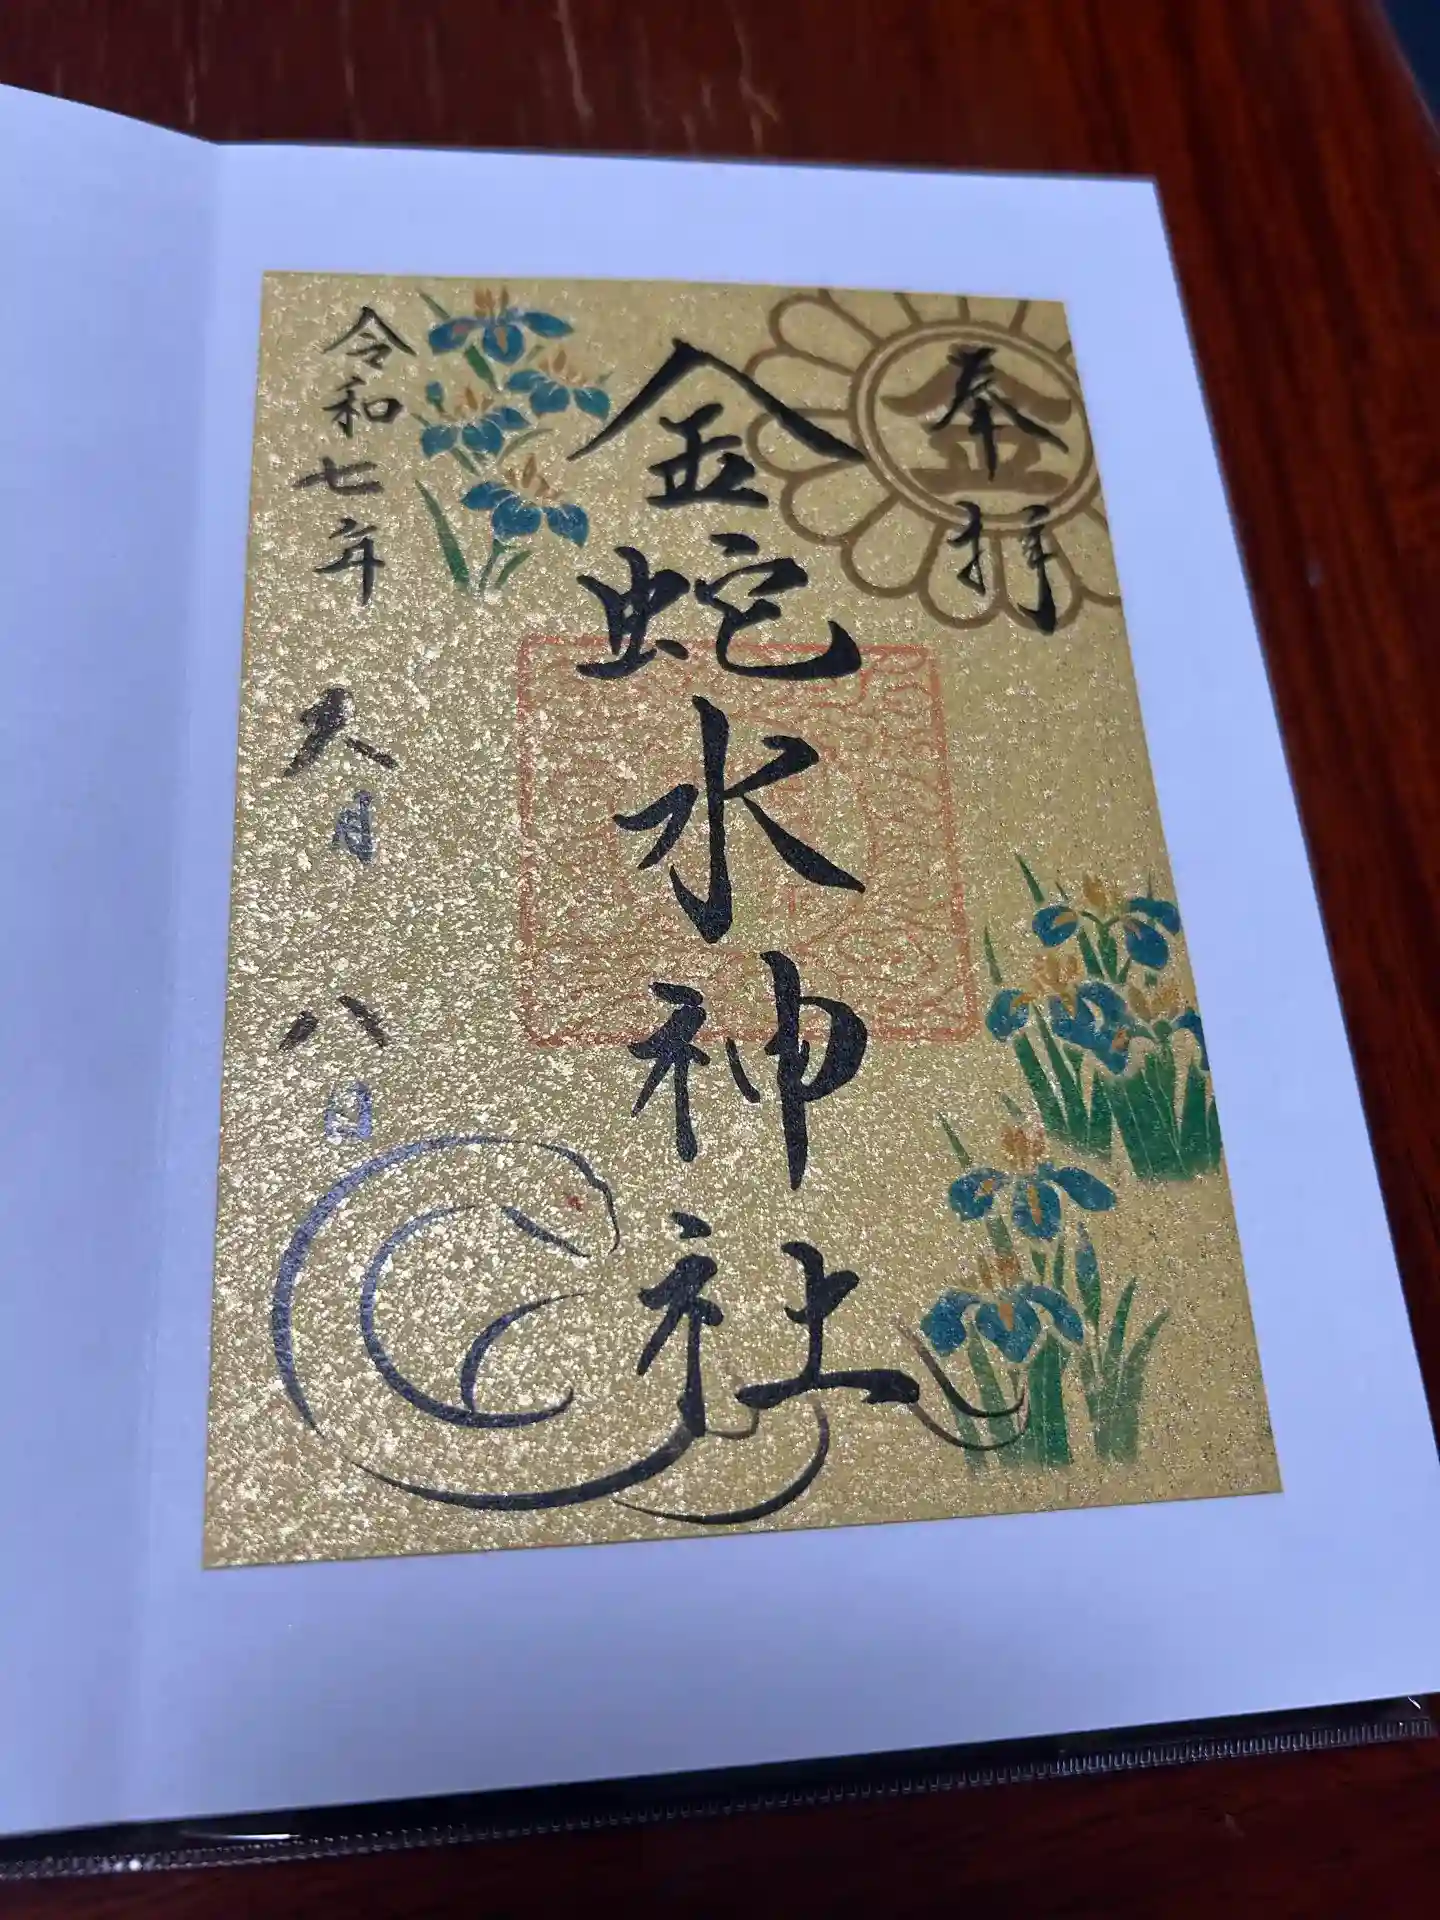 奉拝
金
金蛇水神社
令和七年六月八日